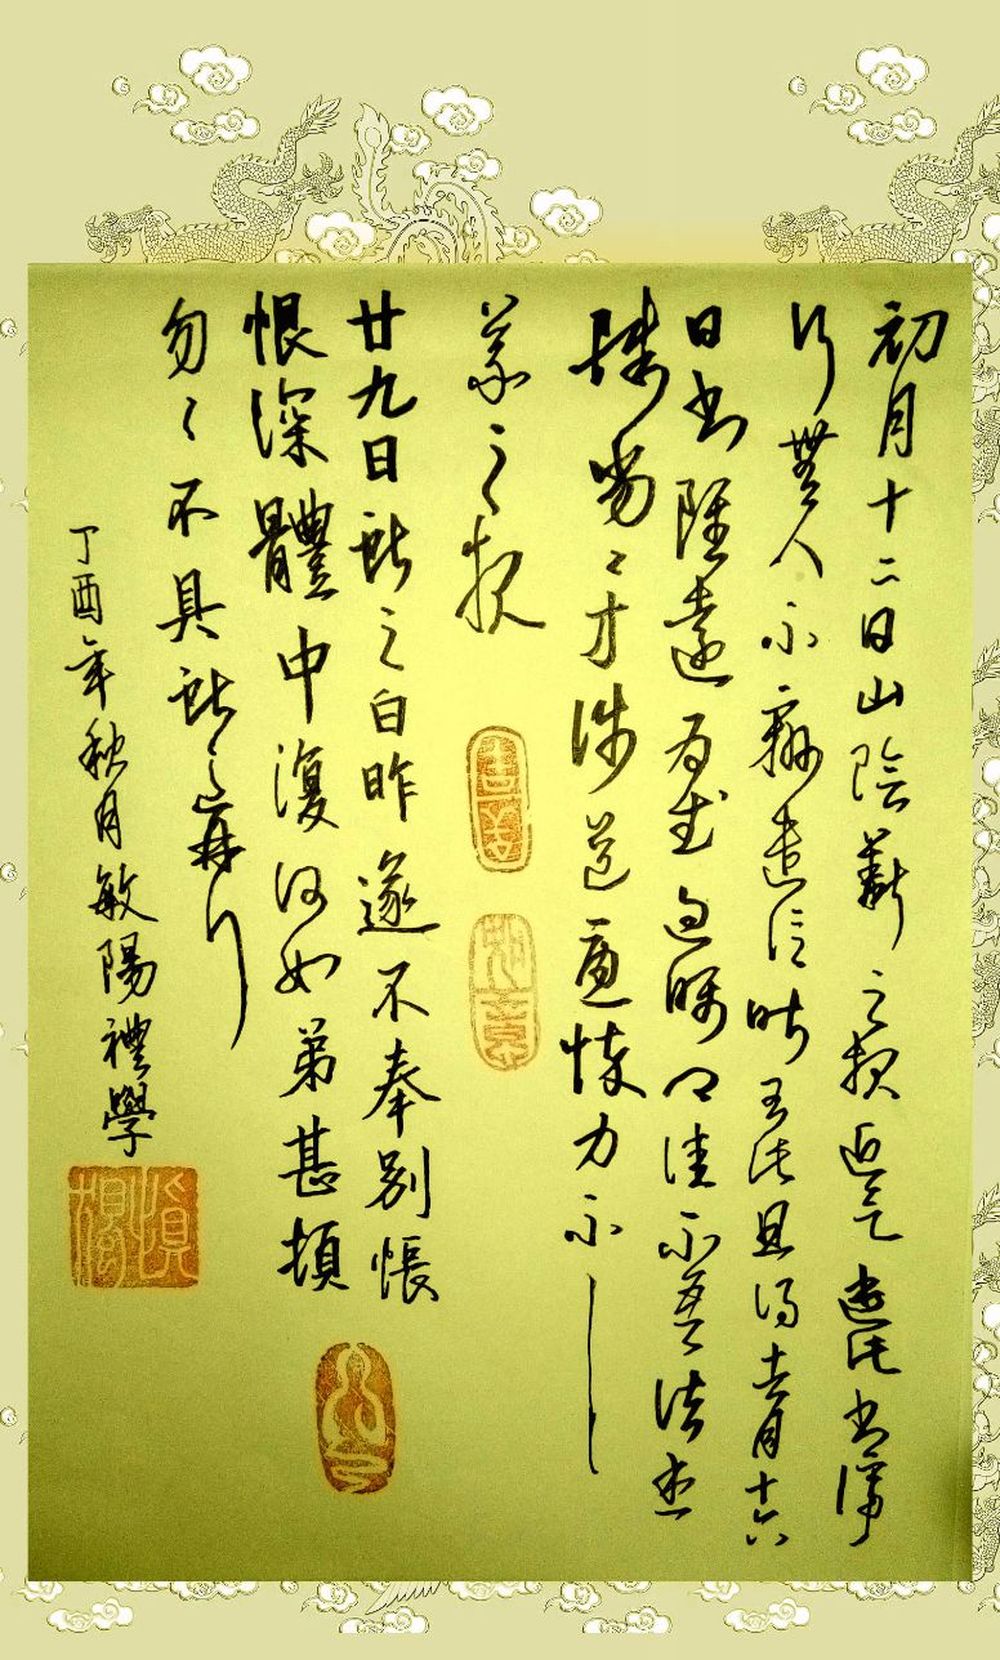 初月十二日山陰羲之報近欲遣此書停
行無人不辦遣信昨至此且得去月十六
日書雖遠為慰過囑卿佳不吾諸患
殊劣〻方涉道憂悴力不一一
羲之報
廿九日獻之白昨遂不奉別悵
恨深體中復何如弟甚頓
勿〻不具獻之再拜
丁酉年秋月敏陽禮學